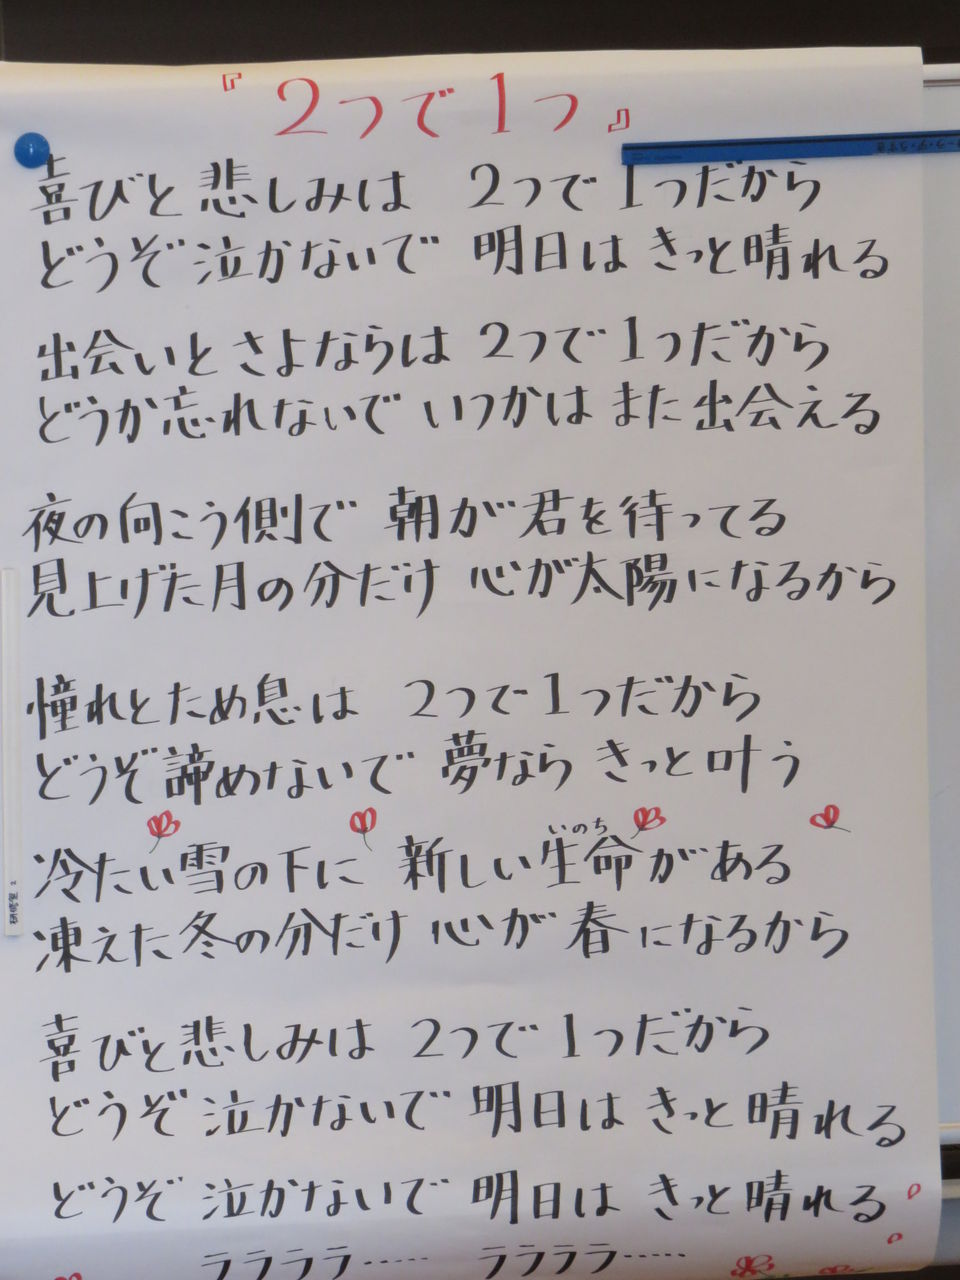 『2つで1つ』
喜びと悲しみは 2つで1つだから
どうぞ泣かないで 明日は きっと晴れる
出会いと さよならは 2つで1つだから
どうか忘れないで いつかは また出会える
夜の向こう側で 朝が君を待ってる
見上げた月の分だけ 心が太陽になるから
憧れとため息は 2つで1つだから
どうぞ諦めないで 夢なら きっと叶う
いのち
冷たい雪の下に 新しい生命がある
凍えた冬の分だけ 心が春になるから
喜びと悲しみは 2つで1つだから
どうぞ泣かないで 明日は きっと晴れる
どうぞ 泣かないで 明日は きっと晴れる
ララララ‥‥‥ ララララ‥‥‥
研修室 2